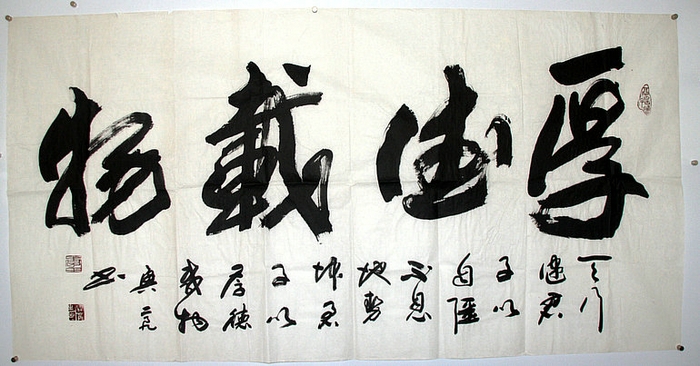 厚德載物
天行
健君
子以
自彊
不息
地势
坤君
子以
厚德
载物
书